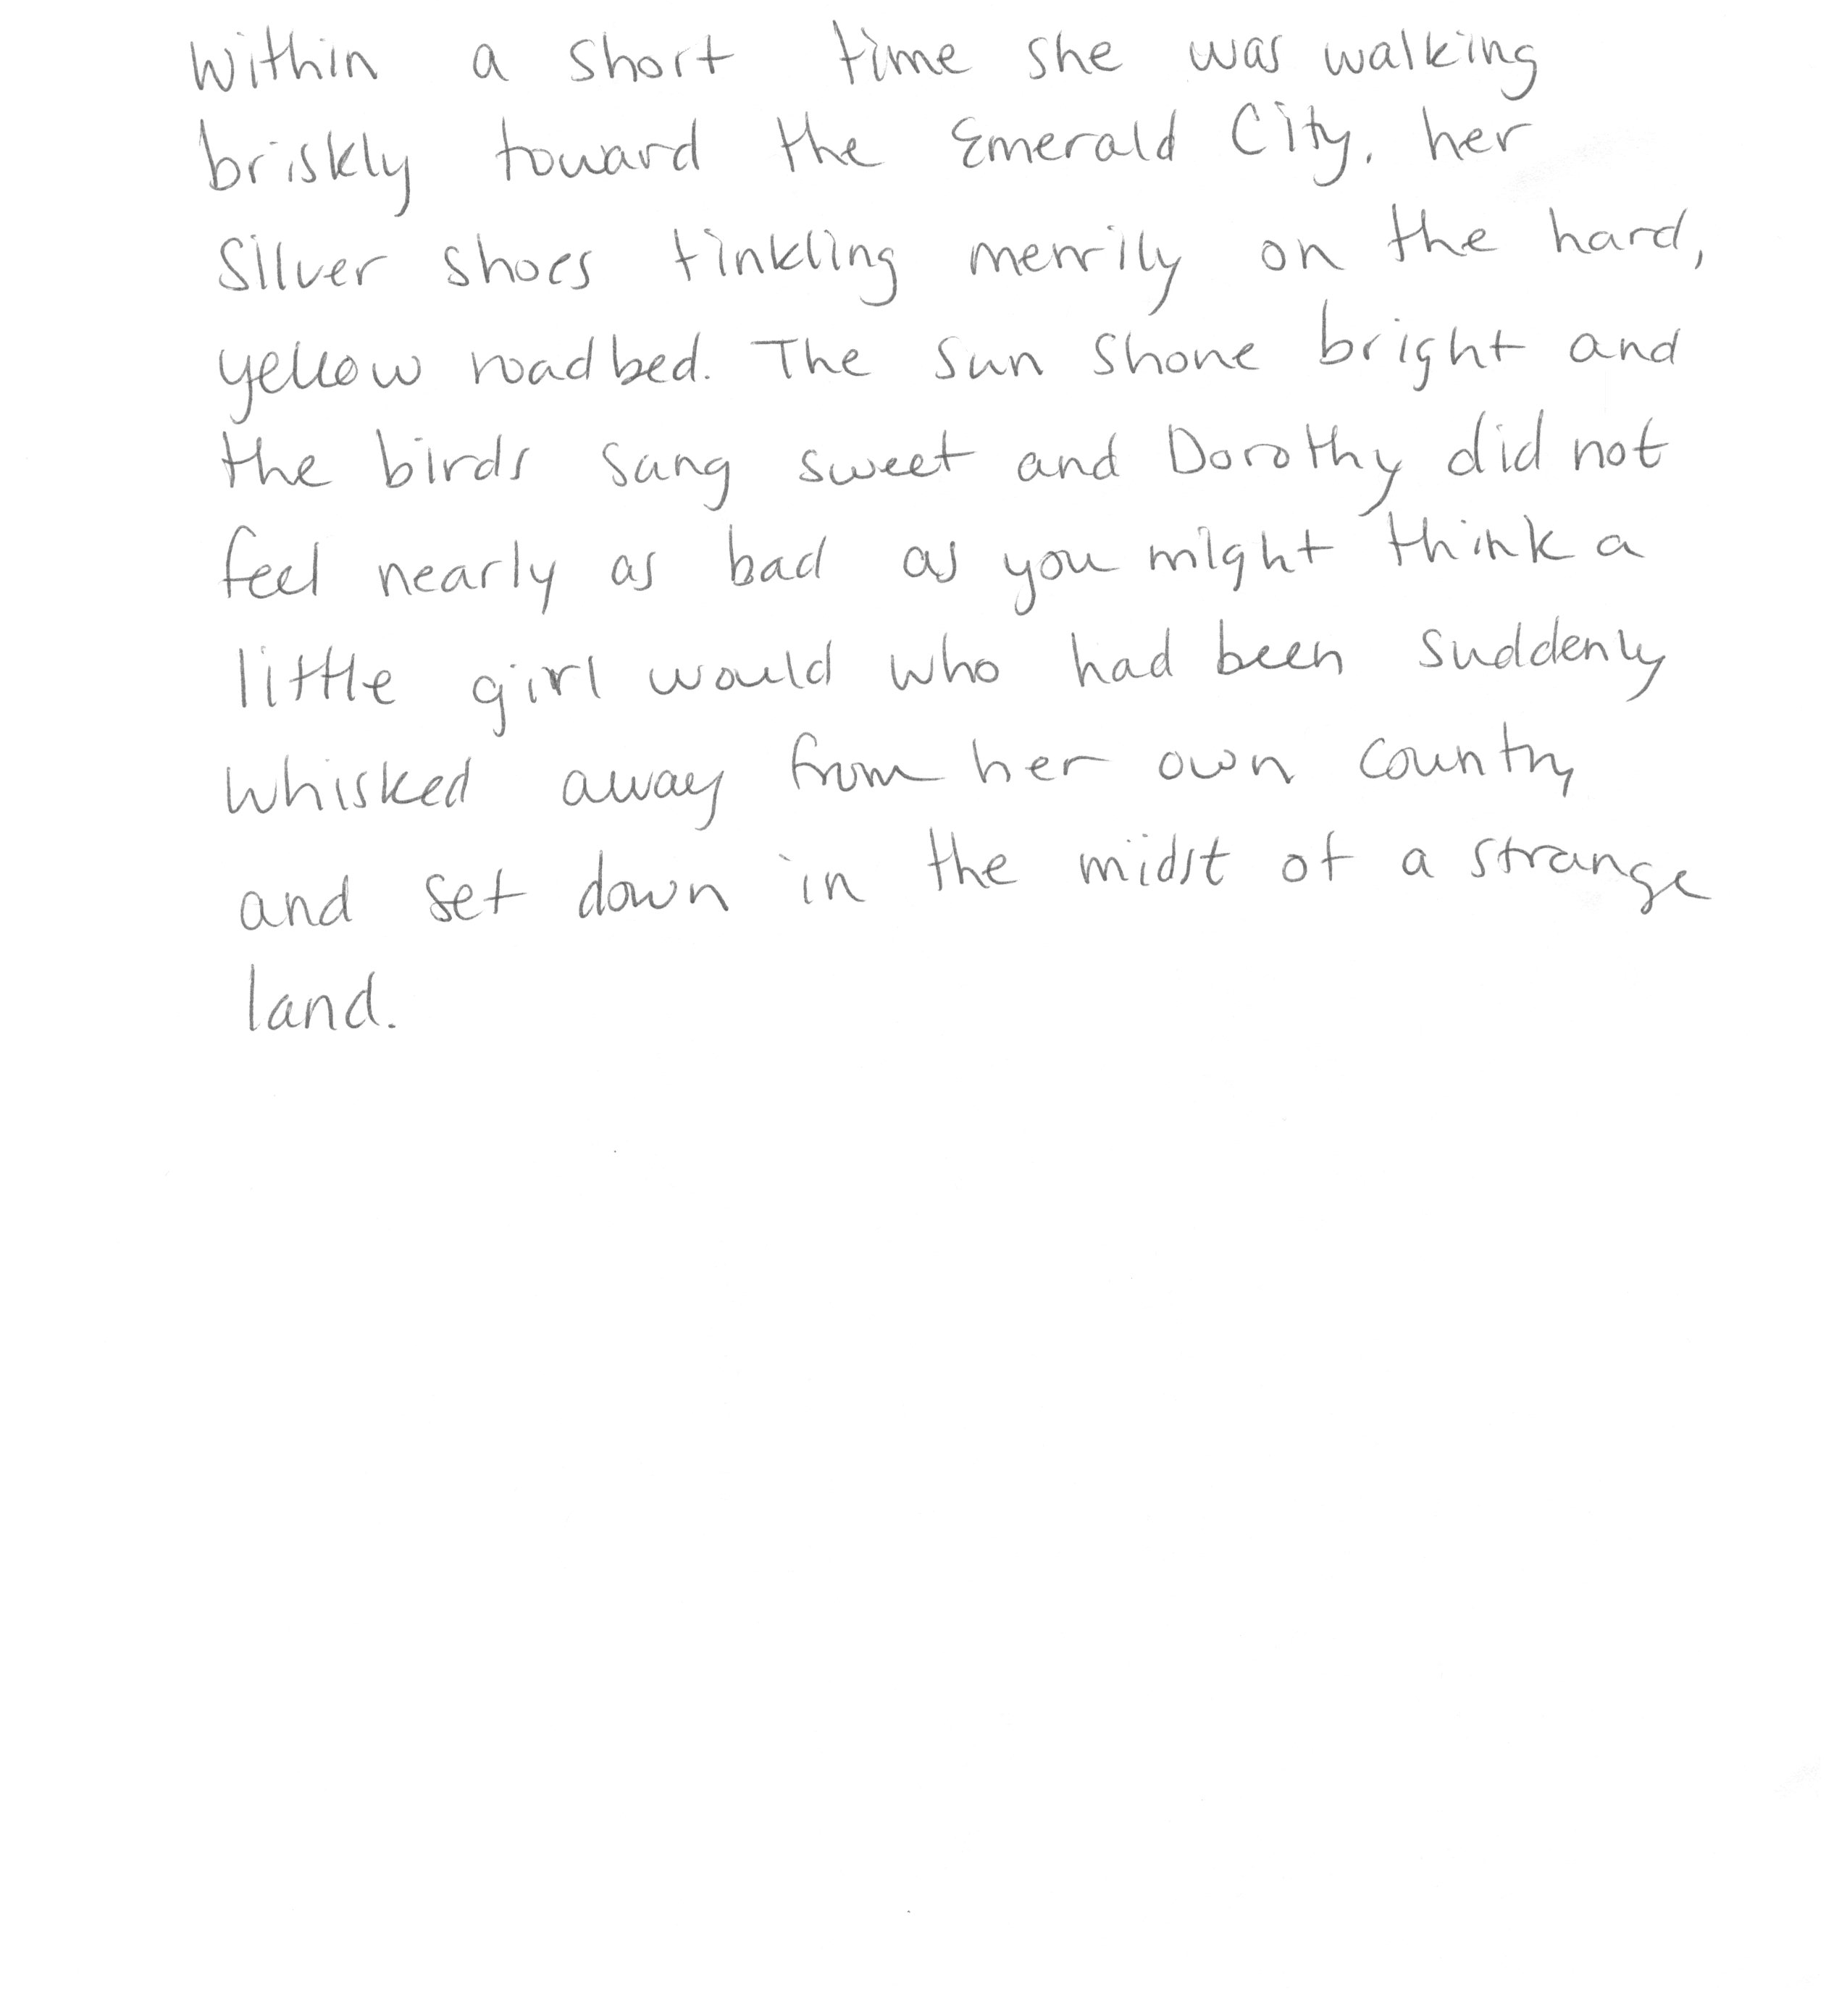 Within a short time she was walking
briskly toward the Emerald City, her
Silver shoes tinkling merrily on the hard,
yellow roadbed. The sun shone bright and
the birds sang sweet and Dorothy did not
feel nearly as bad as you might think a
little girl would who had been suddenly
whisked away from her own country
and set down in the midst of a strange
land.